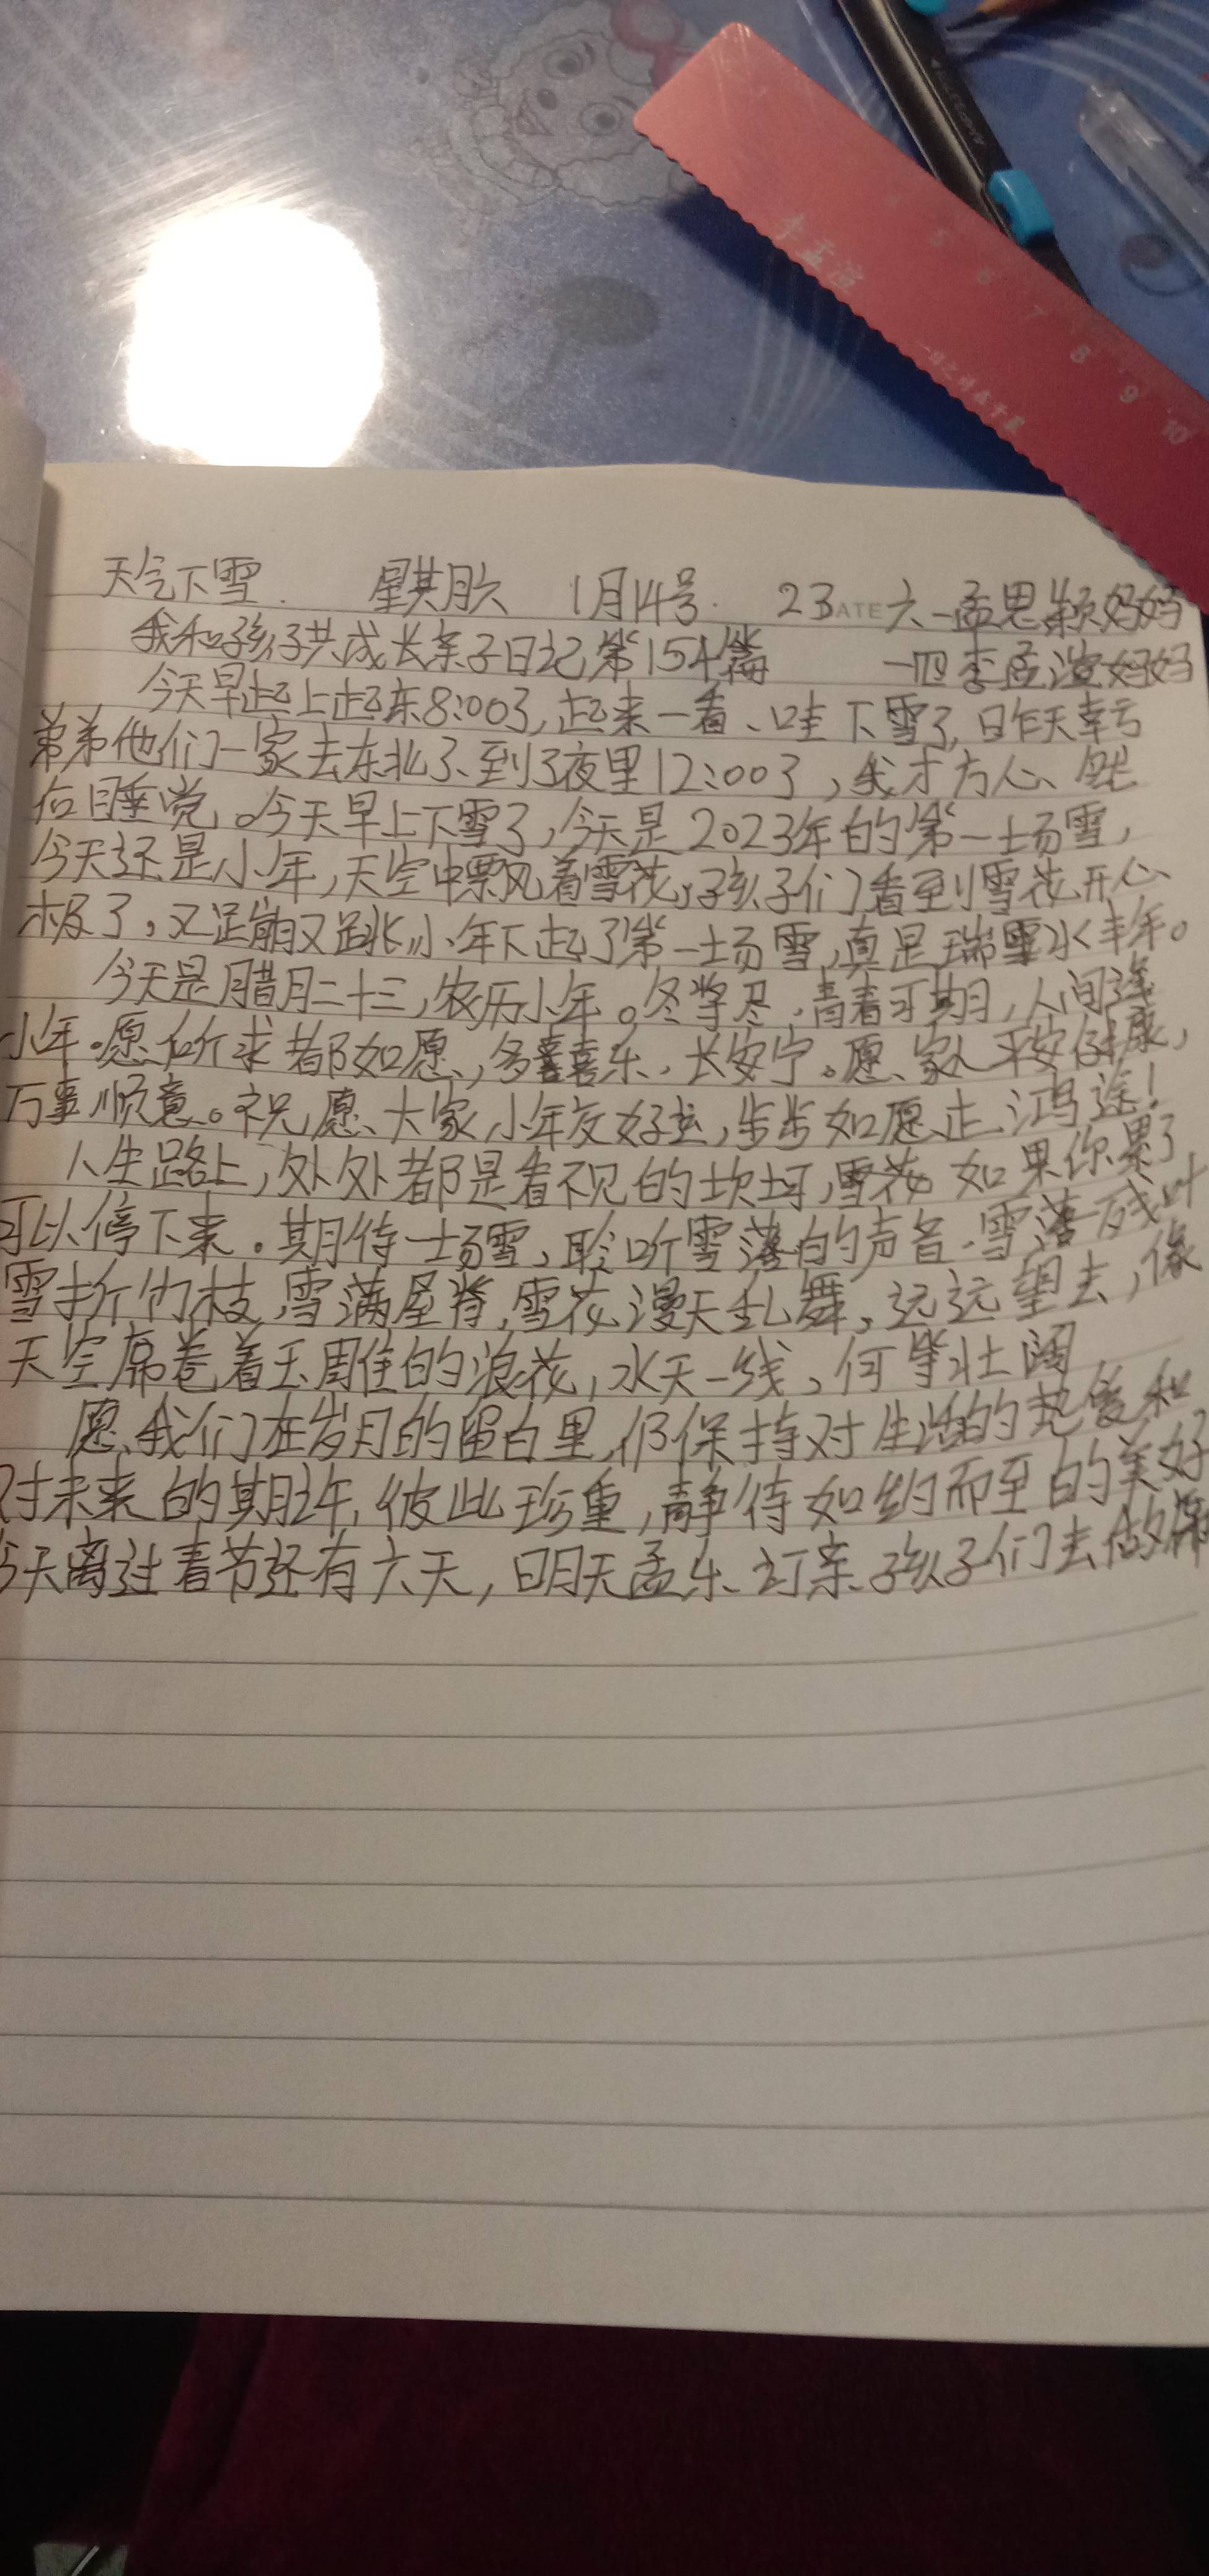 李孟渲
5 6 7 8 9 10
天气下雪. 星其月六 1月14号. 23 DATE 六一孟思颖妈妈
我和孩子共成长亲子日记第154篇 一四李孟渲妈妈
今天早起上起床8:00了,起来一看、哇下雪了,昨天幸亏
弟弟他们一家去东北了、到了夜里12:00了,我才方心、然
后睡觉。今天早上下雪了,今天是2023年的第一场雪,
今天还是小年,天空中飘着雪花,孩子们看到雪花开心
极了,又蹦又跳,小年下起了第一场雪,真是瑞雪水丰年。
今天是腊月二十三,农历小年。冬将尽,青春可期,人间逢
小年。愿所求都如愿,多喜乐,长安宁。愿家人平安健康,
万事顺意。祝愿大家小年友好运,步步如愿走鸿途!
人生路上,处处都是看不见的坎坷,雪花如果你累了
可以停下来。期待一场雪,聆听雪落的声音.雪落残叶
雪折竹枝,雪满屋脊,雪花漫天乱舞,远远望去,像
天空席卷着玉雕的浪花,水天一线,何等壮阔
愿我们在岁月的留白里,仍保持对生活的热爱和
对未来的期许,彼此珍重,静待如约而至的美好
今天离过春节还有六天,明天孟乐订亲孩子们去做